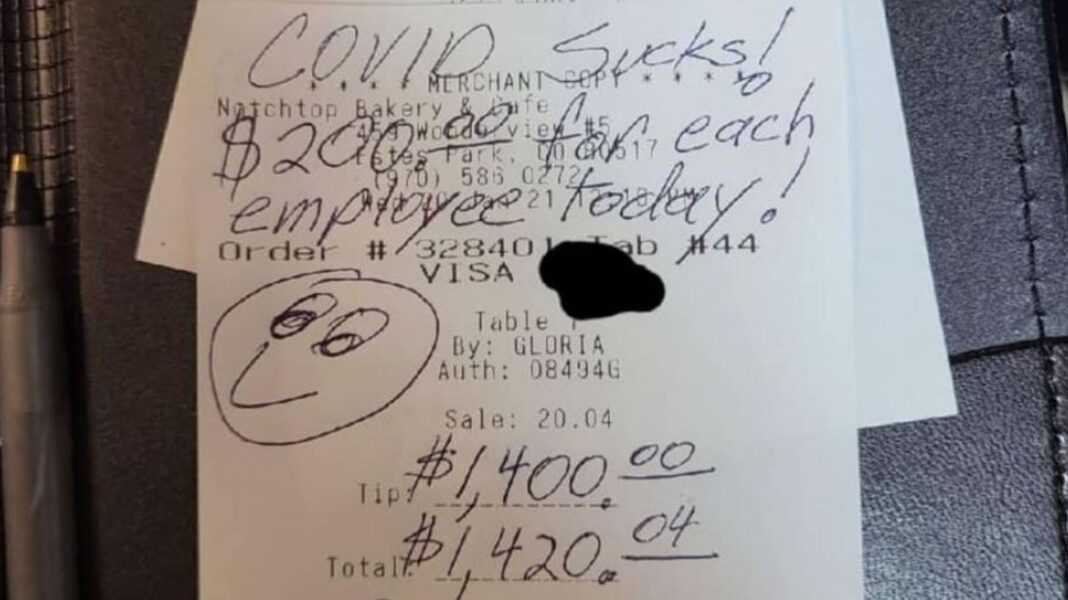 COVID Sucks!
* * * * MERCHANT COPY * * * *
Notchtop Bakery & Cafe
$200.00 for each
459 Wonderview #5
Estes Park, CO 80517
(970) 586 0272
employee today!
21
Order # 328401 Tab #44
VISA
Table
By: GLORIA
Auth: 08494G
Sale: 20.04
Tip: $1,400.00
Total: $1,420.04